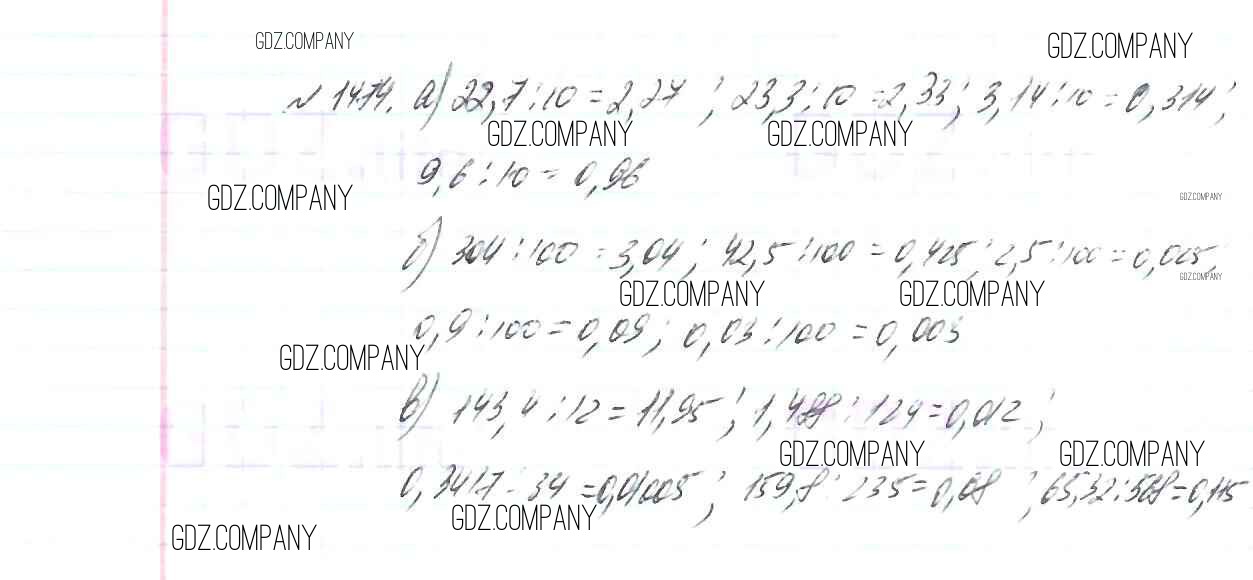 GDZ.COMPANY GDZ.COMPANY
№ 1474. а) 22,7 : 10 = 2,27 ; 23,3 : 10 = 2,33 ; 3,14 : 10 = 0,314 ;
GDZ.COMPANY GDZ.COMPANY
9,6 : 10 = 0,96
GDZ.COMPANY GDZ.COMPANY
б) 304 : 100 = 3,04 ; 42,5 : 100 = 0,425 ; 2,5 : 100 = 0,025 ;
GDZ.COMPANY
GDZ.COMPANY GDZ.COMPANY
0,9 : 100 = 0,09 ; 0,03 : 100 = 0,003
GDZ.COMPANY
в) 143,4 : 12 = 11,95 ; 1,488 : 124 = 0,012 ;
GDZ.COMPANY GDZ.COMPANY
0,3417 : 34 = 0,01005 ; 159,8 : 235 = 0,68 ; 65,32 : 568 = 0,115
GDZ.COMPANY
GDZ.COMPANY